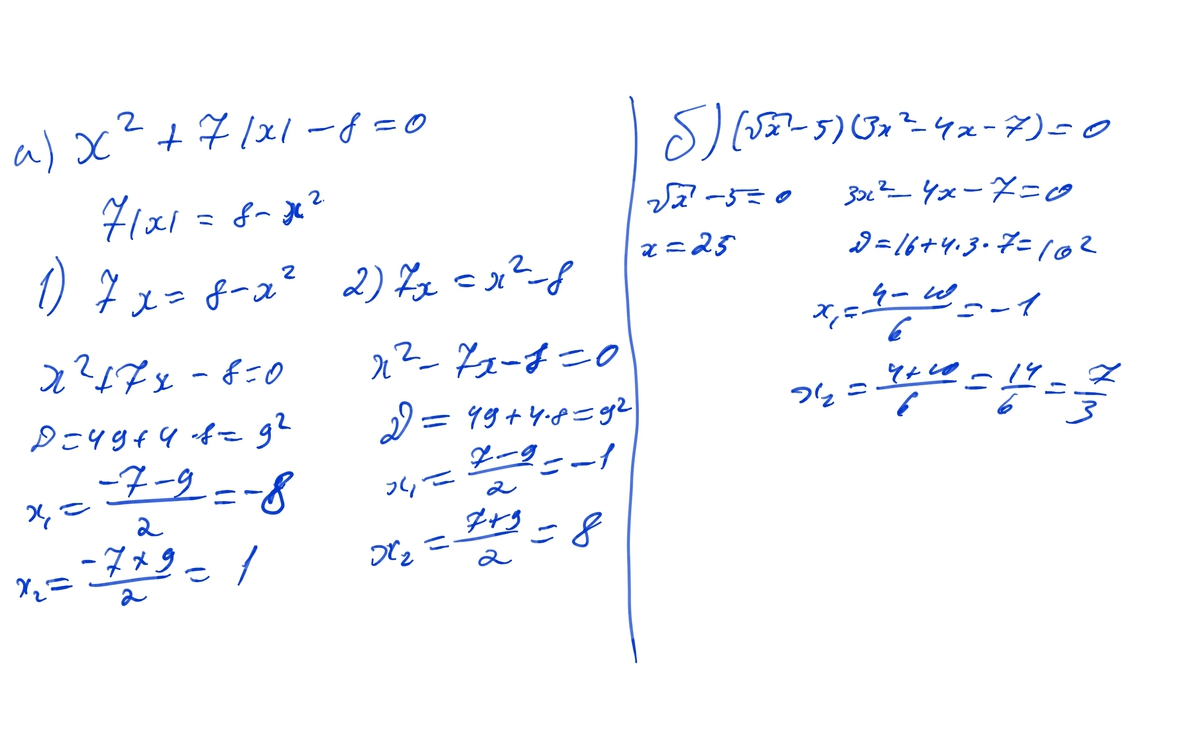 а) x² + 7|x| - 8 = 0
7|x| = 8 - x²
1) 7x = 8 - x²
x² + 7x - 8 = 0
D = 49 + 4 · 8 = 9²
x₁ = (-7 - 9)/2 = -8
x₂ = (-7 + 9)/2 = 1
2) 7x = x² - 8
x² - 7x - 8 = 0
D = 49 + 4 · 8 = 9²
x₁ = (7 - 9)/2 = -1
x₂ = (7 + 9)/2 = 8
б) (√x - 5)(3x² - 4x - 7) = 0
√x - 5 = 0
x = 25
3x² - 4x - 7 = 0
D = 16 + 4 · 3 · 7 = 10²
x₁ = (4 - 10)/6 = -1
x₂ = (4 + 10)/6 = 14/6 = 7/3